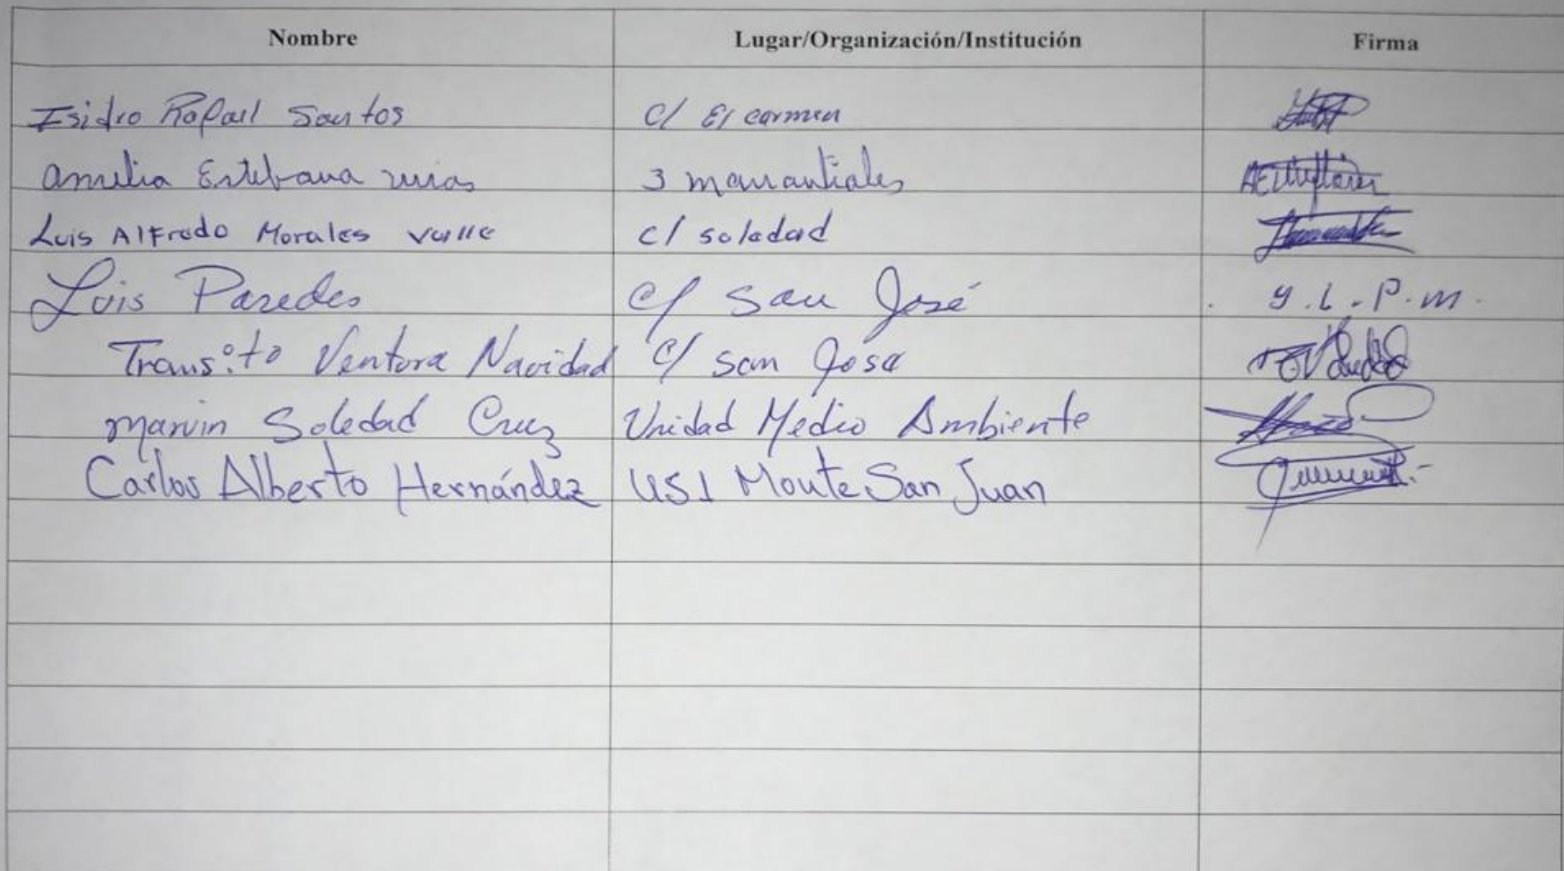 Nombre Lugar/Organización/Institución Firma
Isidro Rafail Santos C/ El carmen
Amilia Estebana 3 manantiales
Luis Alfredo Morales Valle c/ soledad
Luis Paredes C/ San José Y.L.P.M.
Transito Ventura Navidad C/ San José
Marvin Soledad Cruz Unidad Medio Ambiente
Carlos Alberto Hernández USI Monte San Juan